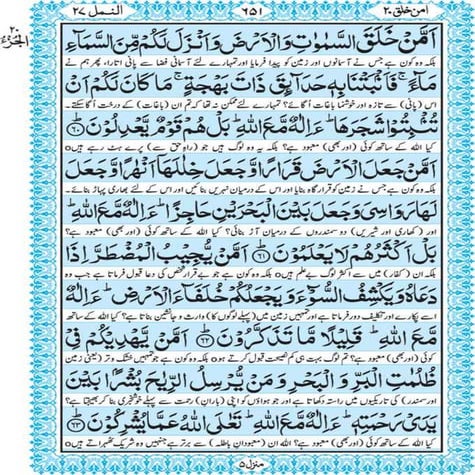 امن خلق ٢٠
٦٥١
النمل ٢٧
الجزء ٢٠
اَمَّنْ خَلَقَ السَّمٰوٰتِ وَالْاَرْضَ وَاَنْزَلَ لَكُمْ مِّنَ السَّمَآءِ
بلکہ وہ کون ہے جس نے آسمانوں اور زمین کو پیدا فرمایا اور تمہارے لئے آسمانی فضا سے پانی اتارا، پھر ہم نے
مَآءً ۚ فَاَنْۢبَتْنَا بِهٖ حَدَآئِقَ ذَاتَ بَهْجَةٍ ۚ مَا كَانَ لَكُمْ اَنْ
اس (پانی) سے تازہ اور خوشنما باغات اُگائے؟ تمہارے لئے ممکن نہ تھا کہ تم ان (باغات) کے درخت اُگا سکتے۔
تُنْۢبِتُوْا شَجَرَهَا ؕ ءَاِلٰهٌ مَّعَ اللّٰهِ ؕ بَلْ هُمْ قَوْمٌ يَّعْدِلُوْنَ ﴿٦٠﴾
کیا اللہ کے ساتھ کوئی (اور بھی) معبود ہے؟ بلکہ یہ وہ لوگ ہیں جو (راہِ حق سے) پرے ہٹ رہے ہیں o
اَمَّنْ جَعَلَ الْاَرْضَ قَرَارًا وَّجَعَلَ خِلٰلَهَاۤ اَنْهٰرًا وَّجَعَلَ
بلکہ وہ کون ہے جس نے زمین کو قرار گاہ بنایا اور اس کے درمیان نہریں بنائیں اور اس کے لئے بھاری پہاڑ بنائے۔
لَهَا رَوَاسِیَ وَجَعَلَ بَيْنَ الْبَحْرَيْنِ حَاجِزًا ؕ ءَاِلٰهٌ مَّعَ اللّٰهِ ؕ
اور (کھاری اور شیریں) دو سمندروں کے درمیان آڑ بنائی؟ کیا اللہ کے ساتھ کوئی (اور بھی) معبود ہے؟
بَلْ اَكْثَرُهُمْ لَا يَعْلَمُوْنَ ﴿٦١﴾ اَمَّنْ يُّجِيْبُ الْمُضْطَرَّ اِذَا
بلکہ ان (کفار) میں سے اکثر لوگ بے علم ہیں o بلکہ وہ کون ہے جو بے قرار شخص کی دعا قبول فرماتا ہے جب وہ
دَعَاهُ وَيَكْشِفُ السُّوْٓءَ وَيَجْعَلُكُمْ خُلَفَآءَ الْاَرْضِ ؕ ءَاِلٰهٌ
اسے پکارے اور تکلیف دور فرماتا ہے اور تمہیں زمین میں (پہلے لوگوں کا) وارث و جانشین بناتا ہے؟ کیا اللہ کے
مَّعَ اللّٰهِ ؕ قَلِيْلًا مَّا تَذَكَّرُوْنَ ﴿٦٢﴾ اَمَّنْ يَّهْدِيْكُمْ فِیْ
ساتھ کوئی (اور بھی) معبود ہے؟ تم لوگ بہت ہی کم نصیحت قبول کرتے ہو o بلکہ وہ کون ہے جو تمہیں خشک و تر (یعنی زمین
ظُلُمٰتِ الْبَرِّ وَالْبَحْرِ وَمَنْ يُّرْسِلُ الرِّيٰحَ بُشْرًۢا بَيْنَ
اور سمندر) کی تاریکیوں میں راستہ دکھاتا ہے اور جو ہواؤں کو اپنی (باران) رحمت سے پہلے خوشخبری بنا کر بھیجتا ہے؟
يَدَیْ رَحْمَتِهٖ ؕ ءَاِلٰهٌ مَّعَ اللّٰهِ ؕ تَعٰلَی اللّٰهُ عَمَّا يُشْرِكُوْنَ ﴿٦٣﴾
کیا اللہ کے ساتھ کوئی (اور بھی) معبود ہے؟ اللہ ان (معبودانِ باطلہ) سے برتر ہے جنہیں وہ شریک ٹھہراتے ہیں o
منزل ٥